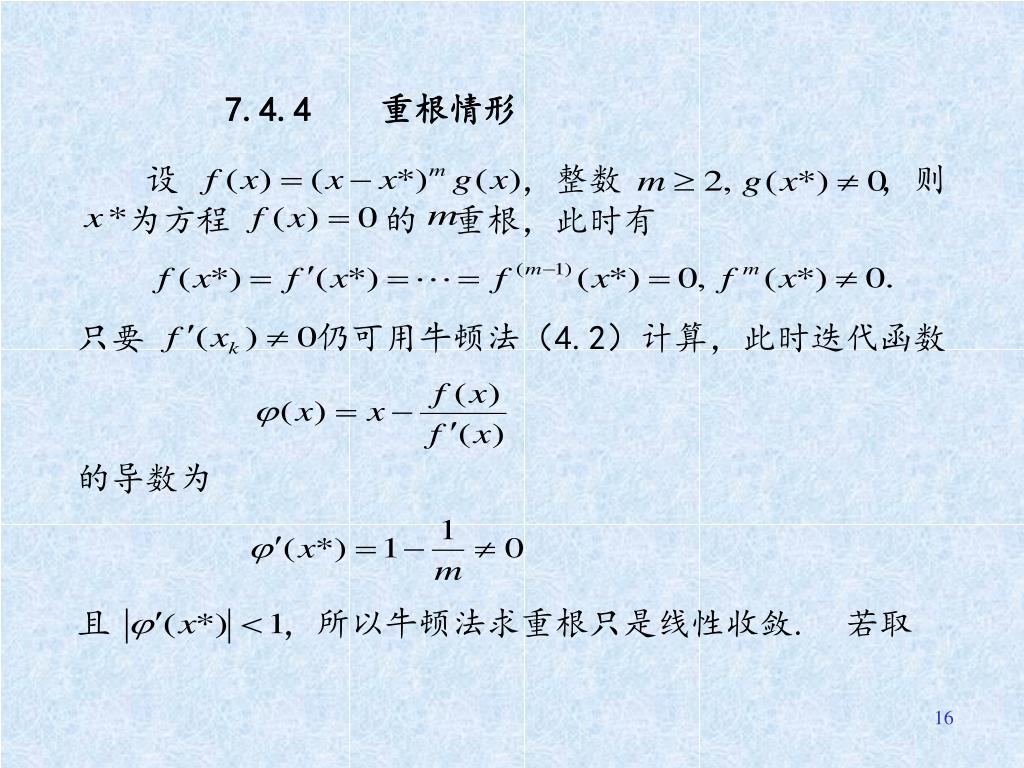 7.4.4 重根情形
设 f(x)=(x−x*)^m g(x), 整数 m≥2, g(x*)≠0, 则
x*为方程 f(x)=0 的 m 重根, 此时有
f(x*)=f′(x*)=⋯=f^(m−1)(x*)=0, f^m(x*)≠0.
只要 f′(x_k)≠0仍可用牛顿法（4.2）计算, 此时迭代函数
φ(x)=x−f(x)/f′(x)
的导数为
φ′(x*)=1−1/m≠0
且 |φ′(x*)|<1, 所以牛顿法求重根只是线性收敛. 若取
16